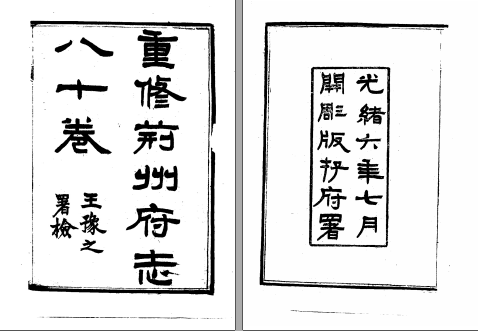 重修荊州府志
八十卷
王豫之
署檢
光緒六年七月
開雕版存府署